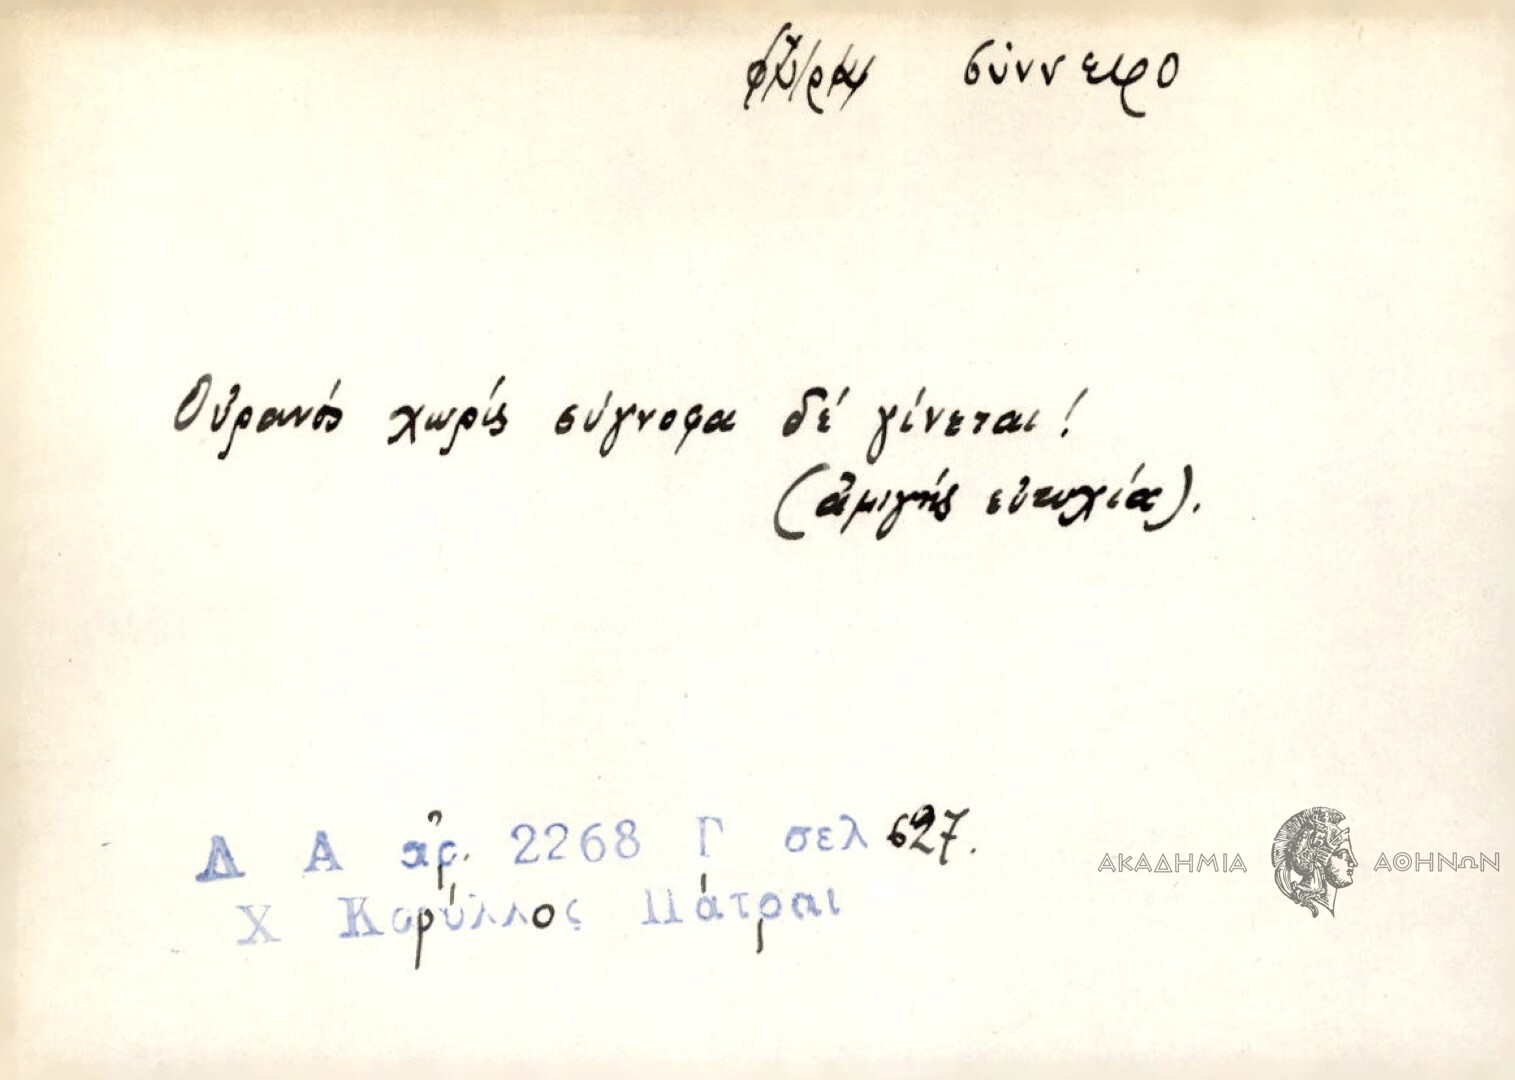 σύννεφο
Οὐρανός χωρίς σύγνοφα δέ γίνεται!
(ἀμιγής εὐτυχία).
Δ Α ἀρ. 2268 Γ σελ 627.
Χ Κορύλλος Πάτραι
ΑΚΑΔΗΜΙΑ ΑΘΗΝΩΝ